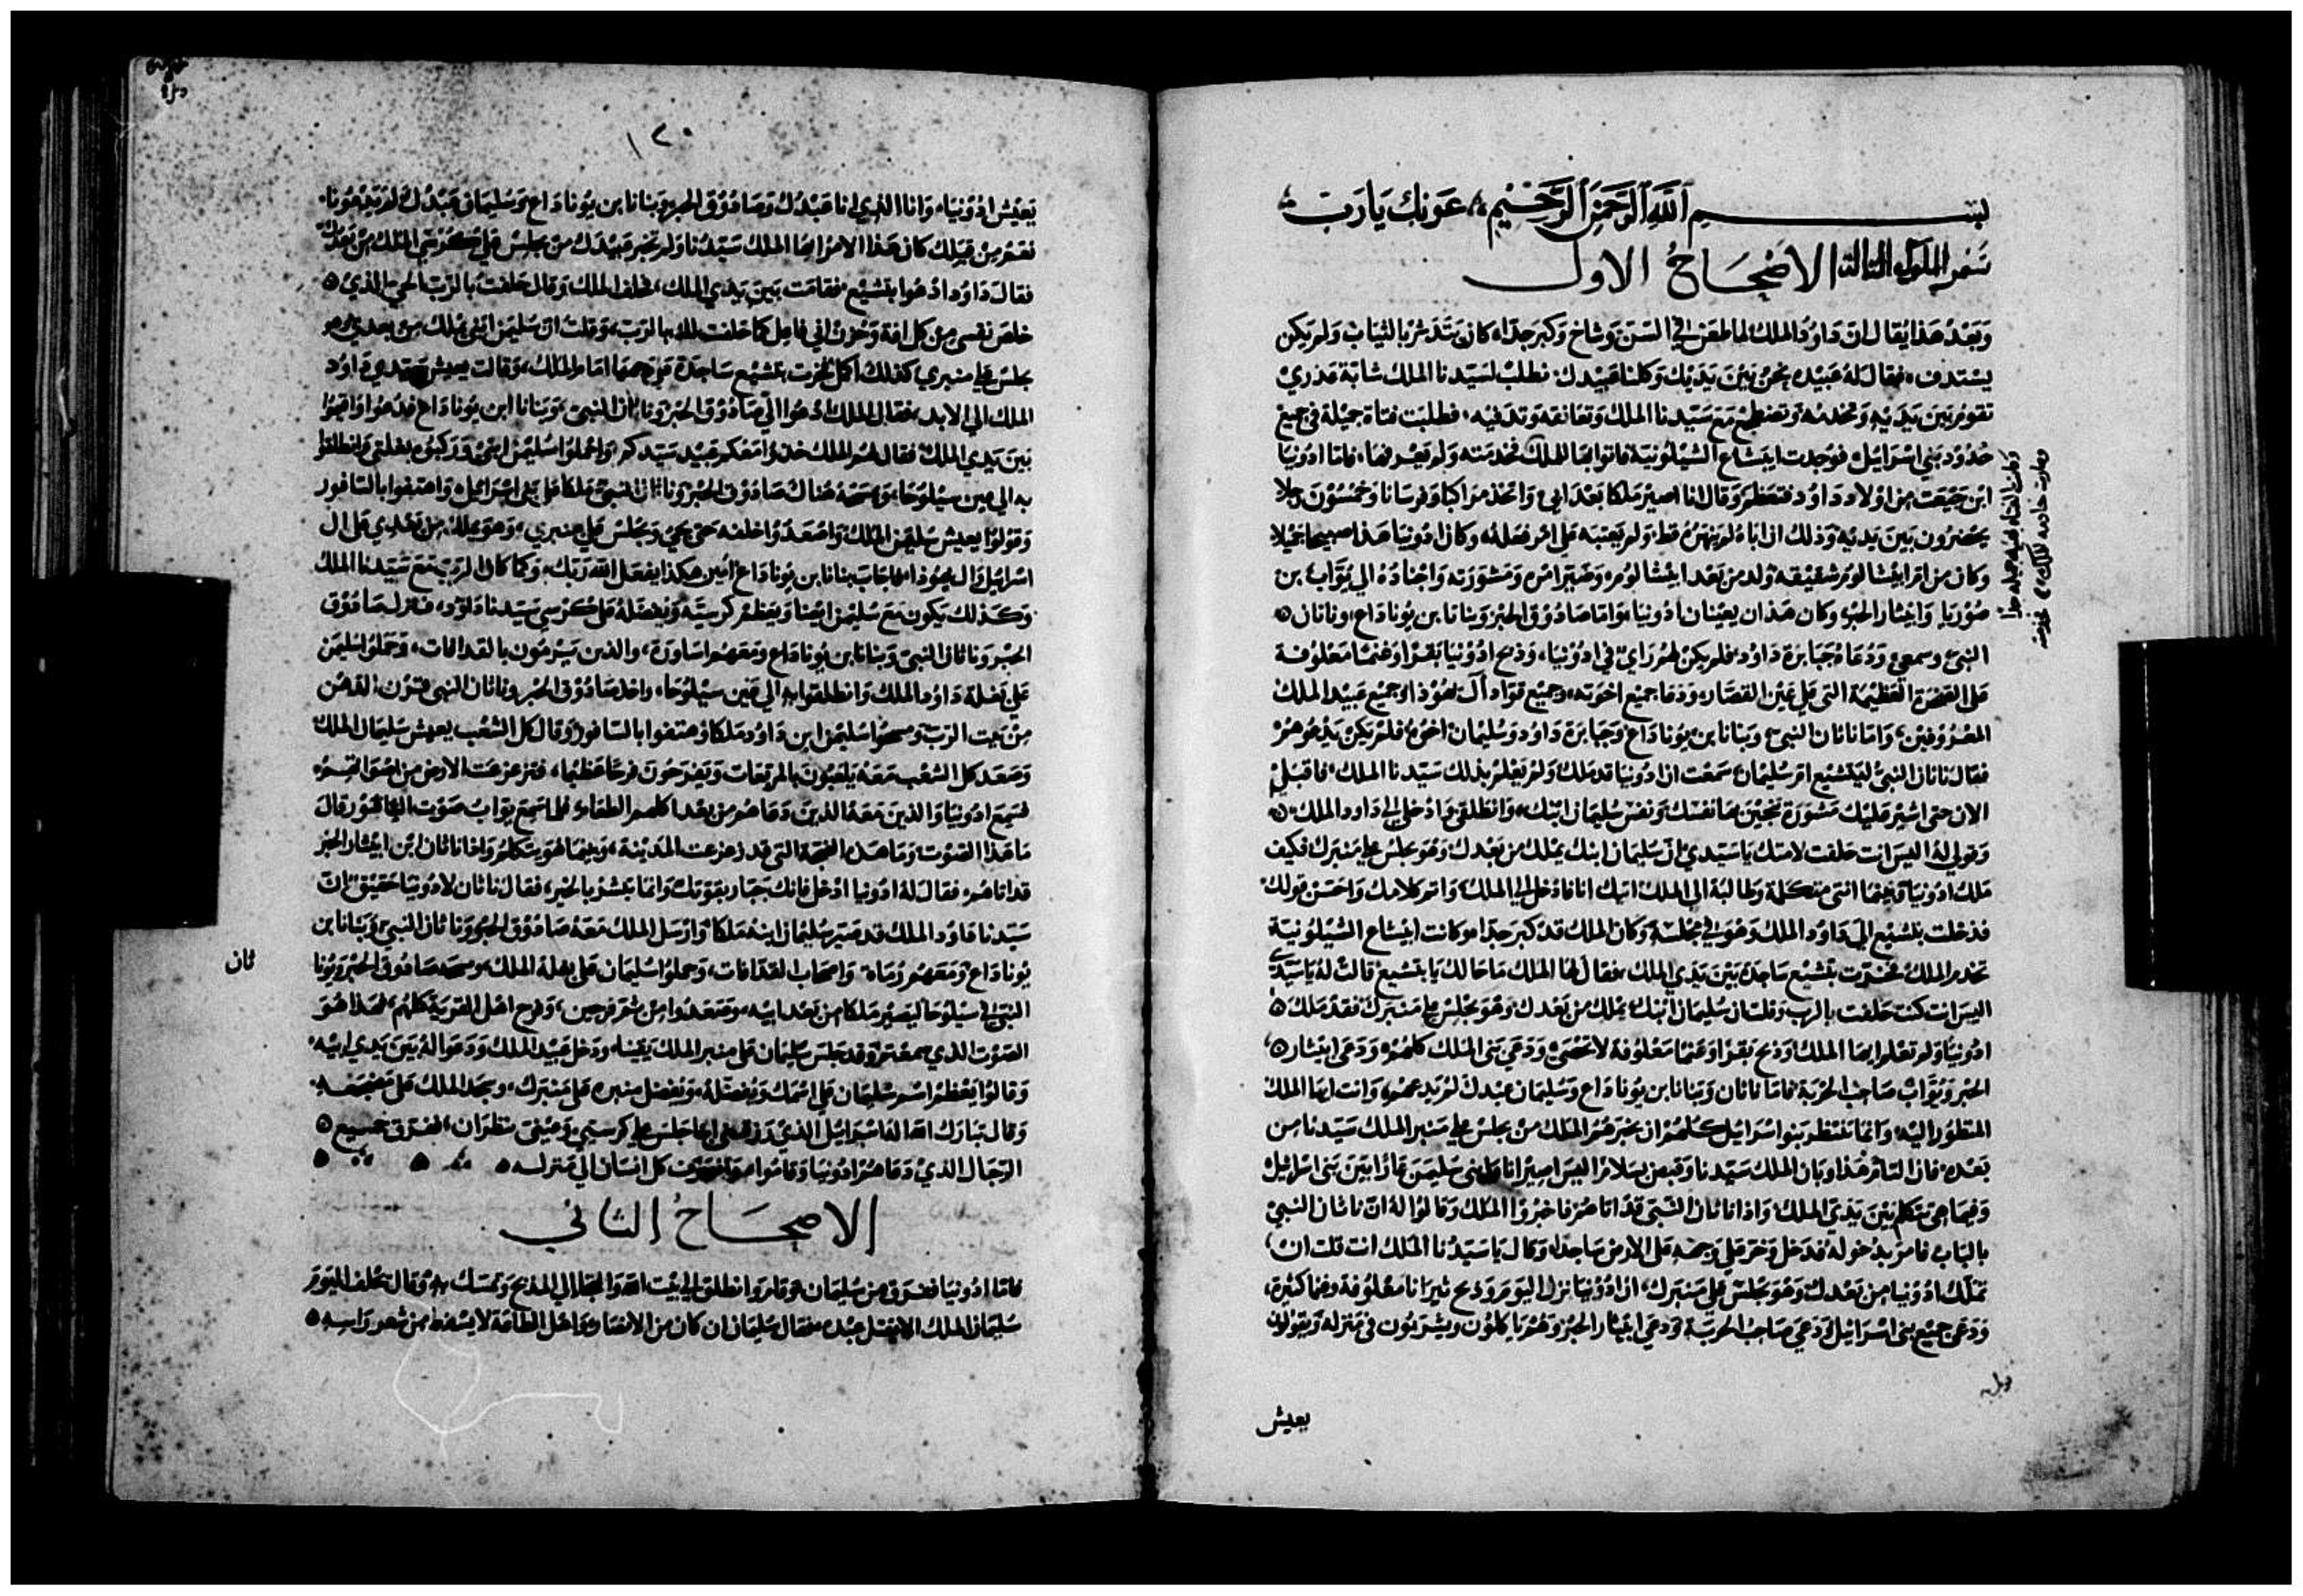 بسم الله الرحمن الرحيم عونك يا رب
سفر الملوك الثالث الاصحاح الاول
وبعد هذا يقال ان داوود الملك لما طعن في السن وشاخ وكبر جدا كان يتدثر بالثياب ولم يكن
يستدف فقال له عبيده نحن بين يديك وكلنا عبيدك نطلب لسيدنا الملك شابة عذري
تقوم بين يديه وتخدمه وتضطجع مع سيدنا الملك وتعانقه وتدفيه فطلبت فتاة جميلة في جميع
حدود بني اسراييل فوجدت ابيشاع الشيلونية فاتوا بها الملك تخدمته ولم يعرفها فاما ادونيا
ابن حجيت من اولاد داود فتعظم وقال انا اصير ملكا بعد ابي واتخذ مراكبا وفرسانا وخمسون رجلا
يحضرون بين يديه وذلك ان اباه لم ينهره قط ولم يعتبه على امر فعله وكان ادونيا هذا صبيحا جميلا
وكان من اقرا ابيشالوم شقيقه ولد من بعد ابيشالوم وصير امره ومشورته واجناده الى يواب بن
صوريا وابيثار الحبر وكان هذان يعينان ادونيا واما صادوق الحبر وبنانا بن يوناداع وناثان
النبي وسمعي ودعاه جبابرة داود فلم يكن لهم راي في ادونيا وذبح ادونيا بقرا وغنما معلوفة
على الصخرة العظيمة التي على عين القصار ودعا جميع اخوته وجميع قواد آل يهوذا وجميع عبيد الملك
المعروفين واما ناثان النبي وبنانا بن يوناداع وجبابرة داود وسليمان اخوه فلم يكن يدعوهم
فقال ناثان النبي لبتشبع ام سليمان سمعت ان ادونيا قد ملك ولم يعلم بذلك سيدنا الملك فاقبلي
الان حتى اشير عليك مشورة تنجين بها نفسك ونفس سليمان ابنك وانطلقي وادخلي الى داود الملك
وقولي له اليس انت حلفت لامتك يا سيدي ان سليمان ابنك يملك من بعدك وهو يجلس على منبرك فكيف
ملك ادونيا وفيما انتي متكلمة وطالبة الى الملك اتيك انا فادخل الى الملك واتم كلامك واحسن قولك
فدخلت بتشبع الى داود الملك وهو في مجلسه وكان الملك قد كبر جدا وكانت ابيشاع الشيلونية
تخدم الملك فخرت بتشبع ساجدة بين يدي الملك فقال لها الملك ما حالك يا بتشبع قالت له يا سيدي
اليس انت كنت حلفت بالرب وقلت ان سليمان ابنك يملك من بعدك وهو يجلس على منبرك فقد ملك
ادونيا ولم تعلم ايها الملك وذبح بقرا وغنما معلوفة لا تحصى ودعى بني الملك كلهم ودعى ابيثار
الحبر ويواب صاحب الحربة فاما ناثان وبنانا بن يوناداع وسليمان عبدك لم يدعهم وانت ايها الملك
المنظور اليه وانما ينتظر بنوا اسراييل كلهم ان يخبرهم الملك من يجلس على منبر الملك سيدنا من
بعده
وفيما هي تتكلم بين يدي الملك واذا ناثان النبي قد اتاهم فاخبروا الملك وقالوا له ان ناثان النبي
بالباب فامر بدخوله فدخل وخر على وجهه على الارض ساجدا وقال يا سيدنا الملك انت قلت ان
تملك ادونيا من بعدك وهو يجلس على منبرك ان ادونيا نزل اليوم وذبح ثيرانا معلوفة وغنما كثيرة
ودعى جميع بني اسراييل ودعى صاحب الحربة ودعى ابيثار الحبر وهم ياكلون ويشربون في منزله ويقولون
يعيش
١٢٠
يعيش ادونيا وانا الذي انا عبدك وصادوق الحبر وبنانا بن يوناداع وسليمان عبدك لم يدعونا
فقال داود ادعوا بتشبع فقامت بين يدي الملك فحلف الملك وقال حلفت بالرب الحي الذي
خلص نفسي من كل افة وحزن اني فاعل كما حلفت لك بالرب وقلت ان سليمن ابني يملك من بعدي وهو
يجلس على منبري كذلك اكمل فخرت بتشبع ساجدة على وجهها امام الملك وقالت يعيش سيدي داود
الملك الى الابد فقال الملك ادعوا الي صادوق الحبر وناثان النبي وبنانا ابن يوناداع فدعوا واقيموا
بين يدي الملك فقال لهم الملك خذوا معكم عبيد سيدكم واحملوا سليمن ابني وركبوه بغلتي وانطلقوا
به الى عين سيلوحا ويمسحه هناك صادوق الحبر وناثان النبي ملكا على بني اسراييل واهتفوا بالسافور
وقولوا يعيش سليمن الملك واصعدوا خلفه حتى يجي ويجلس على منبري وهو يملك من بعدي على ال
اسراييل وال يهوذا اجاب بنانا بن يوناداع امين هكذا يفعل الله ربك وكما كان الرب مع سيدنا الملك
وكذلك يكون مع سليمن ايضا ويعظم كرسيه ويفضله على كرسي سيدنا داوود فنزل صادوق
الحبر وناثان النبي وبنانا بن يوناداع ومعهم اساورة والذين يرمون بالقذافات وحملوا سليمن
على بغلة داود الملك وانطلقوا به الى عين سيلوحا واخذ صادوق الحبر وناثان النبي قرن الدهن
من بيت الرب ومسحوا سليمن ابن داود ملكا وهتفوا بالسافور وقال كل الشعب يعيش سليمان الملك
وصعد كل الشعب معه يلعبون بالمربعات ويفرحون فرحا عظيما فتزعزعت الارض من اصواتهم
فسمع ادونيا والذين معه الذين دعاهم من بعد اكلهم الطعام فلما سمع يواب صوت السافور قال
ما هذا الصوت وما هذه الضجة التي قد زعزعت المدينة وبينما هو يتكلم واذا ناثان ابن ابيثار الحبر
قد اتاهم فقال له ادونيا ادخل فانك جبار بقوتك وانما تبشر بالخير فقال ناثان لادونيا حقيق ان
سيدنا داود الملك قد صير سليمان ابنه ملكا وارسل الملك معه صادوق الحبر وناثان النبي وبنانا بن
يوناداع ومعهم رماة واصحاب القذافات وحملوا سليمان على بغلة الملك ومسحه صادوق الحبر ويونا
ثان
النبي في سيلوحا ليصير ملكا من بعد ابيه وصعدوا من ثم فرحين وفرح اهل القرية كلهم فهذا هو
الصوت الذي سمعتم وقد جلس سليمان على منبر الملك ودخل عبيد الملك ودعوا له بين يدي ابيه
وقالوا يعظم اسم سليمان على اسمك ويفضله ويفضل منبره على منبرك وسجد الملك على مضجعه
وقال تبارك الله اله اسراييل الذي رزقني ابنا جلس على كرسيي وعيني تنظران
الرجال الذي دعاهم ادونيا وقاموا كل انسان الى منزله
الاصحاح الثاني
فاما ادونيا ففرق من سليمان وقام وانطلق الى بيت الله والتجا الى المذبح وتمسك به وقال يحلف اليوم
سليمان الملك الا يقتل عبده فقال سليمان ان كان من الانصار واهل الطاعة لا يسقط من شعر راسه